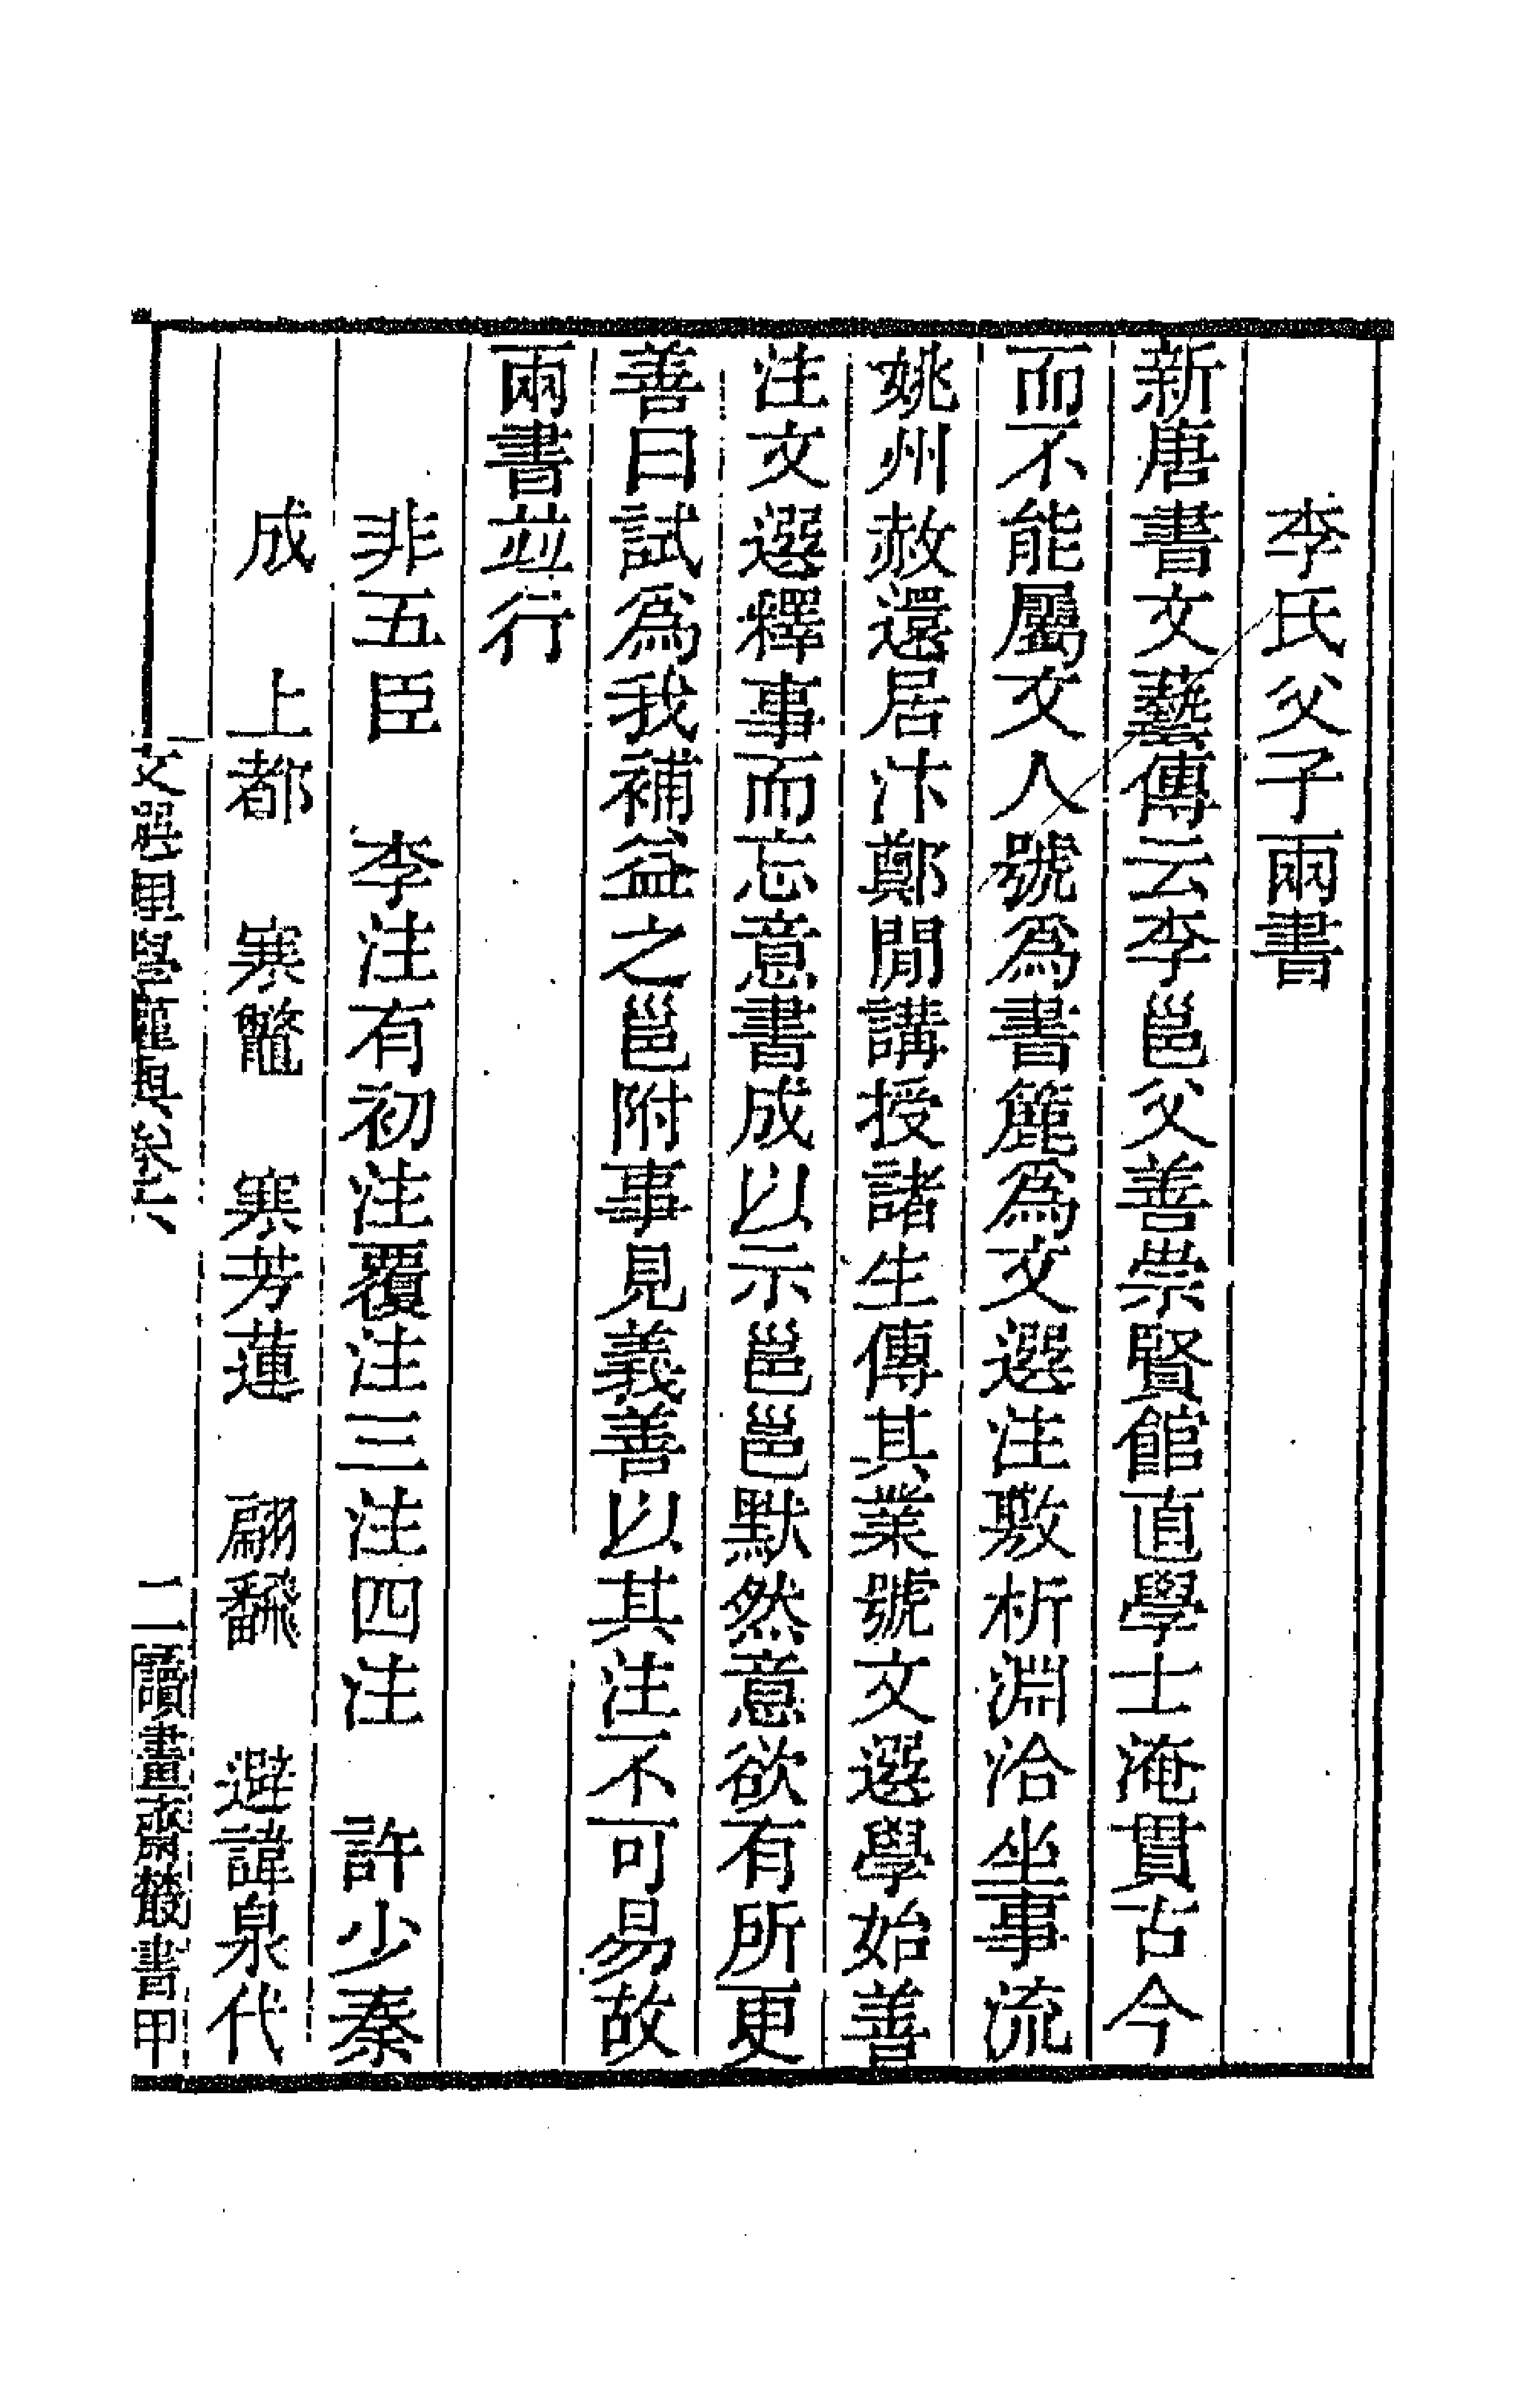 李氏父子兩書
新唐書文藝傳云李邕父善崇賢館直學士淹貫古今
而不能屬文人號爲書簏爲文選注敷析淵洽坐事流
姚州赦還居汴鄭閒講授諸生傳其業號文選學始善
注文選釋事而忘意書成以示邕邕默然意欲有所更
善曰試爲我補益之邕附事見義善以其注不可易故
兩書並行
非五臣　李注有初注覆注三注四注　許少秦
成　上都　寒鼈　寒芳蓮　翩飜　避諱泉代
文選理學權輿卷六　二　讀畫齋叢書甲